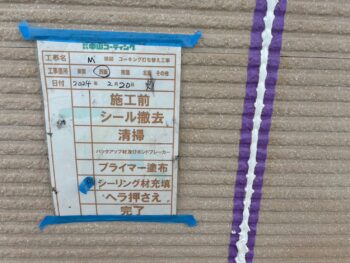 工事名 M 様邸 コーキング打ち替え工事
工事箇所 東面 西面 南面 北面 その他
日付 2024年 2月20日
施工前
シール撤去
清掃
バックアップ材及びボンドブレーカー
プライマー塗布
シーリング材充填
ヘラ押さえ
完了